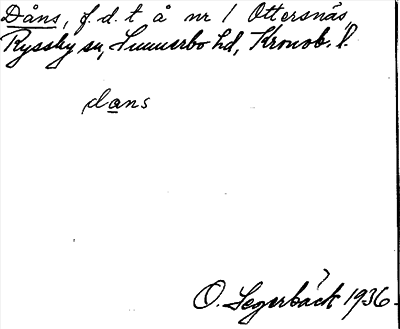 Dåns, f.d. t å nr 1 Ottersnäs,
Ryssby sn, Sunnerbo hd, Kronob. l.
dans
O. Segerbäck 1936.